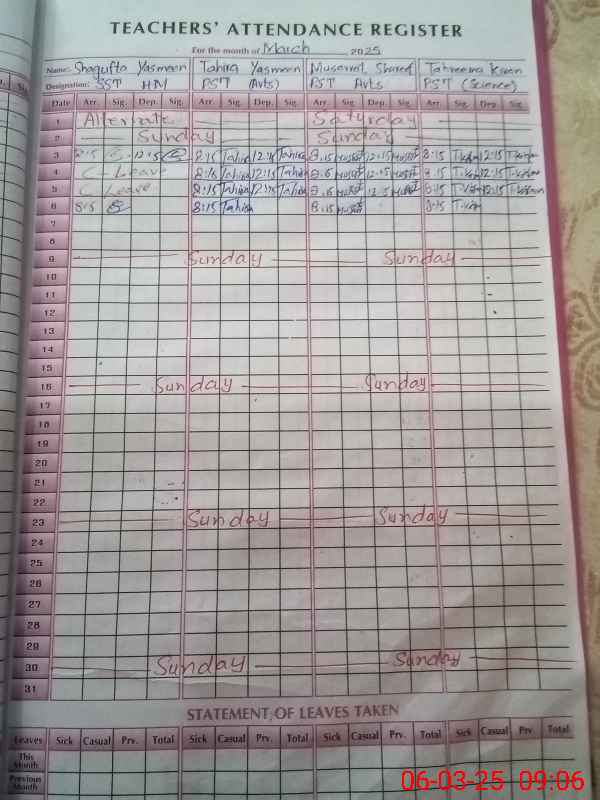 TEACHERS' ATTENDANCE REGISTER
For the month of March 2025
Name: Shagufta Yasmeen Tahira Yasmeen Musarrat Shaheen Tahreema Kiran
Designation: SST HM PST (Arts) PST Arts PST (Science)
Date Arr. Sig. Dep. Sig. Arr. Sig. Dep. Sig. Arr. Sig. Dep. Sig. Arr. Sig. Dep. Sig.
1 Alternate Saturday
2 Sunday Sunday
3 8:15 12:15 8:15 Tahira 12:15 Tahira 8:15 12:15 8:15 12:15
4 C- Leave 8:15 Tahira 12:15 Tahira 8:15 12:15 8:15 12:15
5 C Leave 8:15 Tahira 12:15 Tahira 8:15 12:15 8:15 12:15
6 8:15 8:15 Tahira 8:15 8:15
7
8
9 Sunday Sunday
10
11
12
13
14
15
16 Sunday Sunday
17
18
19
20
21
22
23 Sunday Sunday
24
25
26
27
28
29
30 Sunday Sunday
31
STATEMENT OF LEAVES TAKEN
Leaves Sick Casual Prv. Total Sick Casual Prv. Total Sick Casual Prv. Total Sick Casual Prv. Total
This Month
Previous Month
06-03-25 09:06